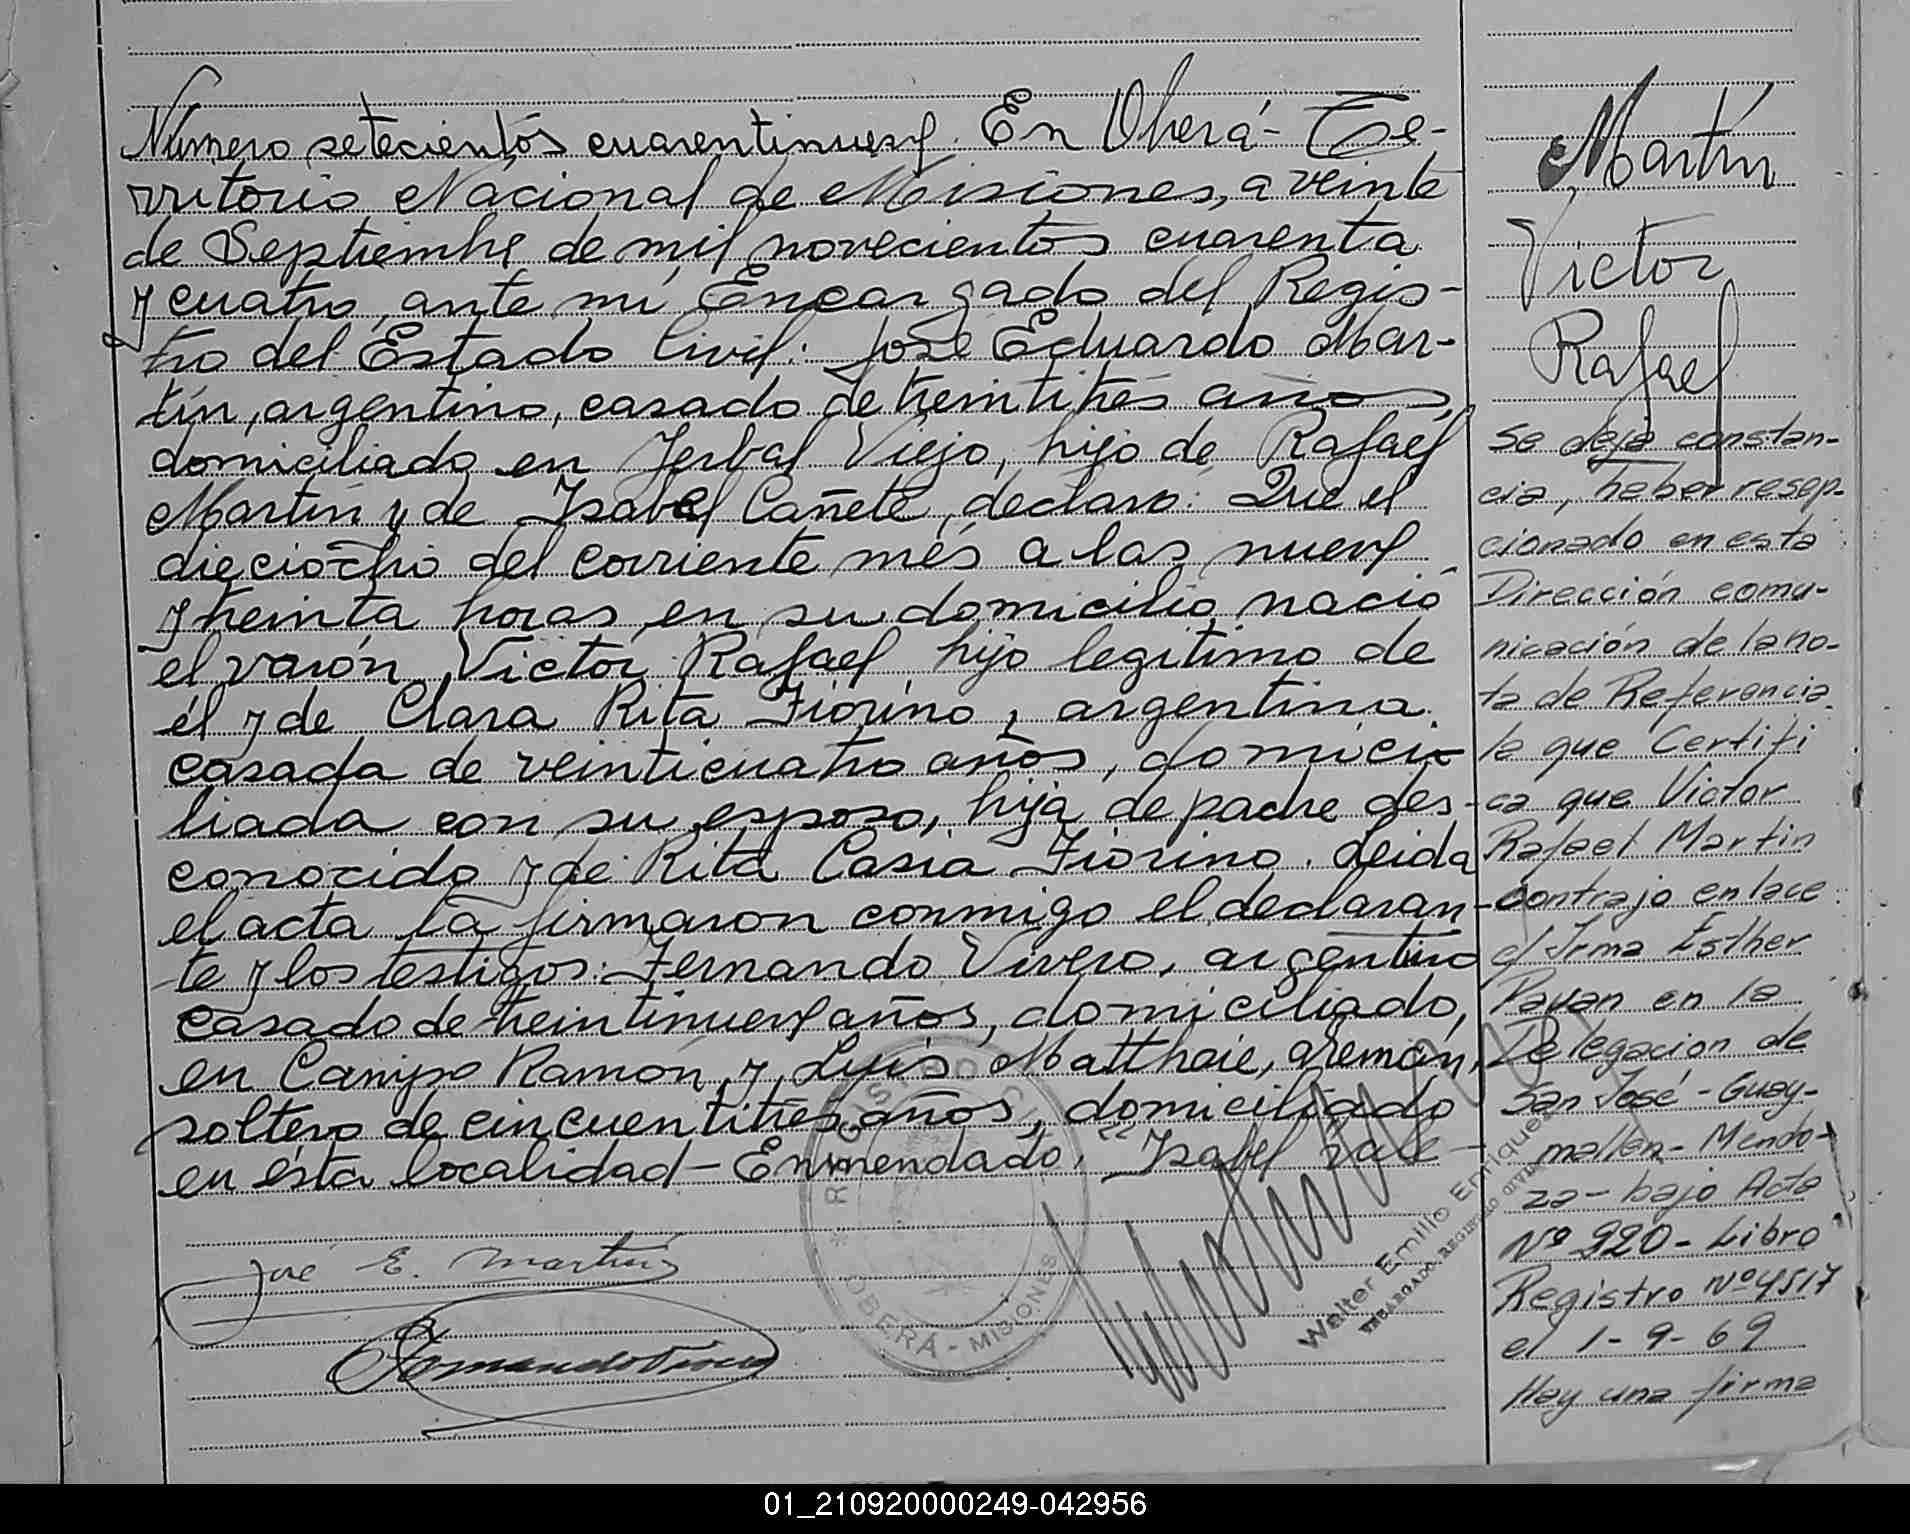 Número setecientos cuarentinueve. En Oberá - Te-
rritorio Nacional de Misiones, a veinte
de Septiembre de mil novecientos cuarenta
y cuatro, ante mí Encargado del Regis-
tro del Estado Civil: José Eduardo Mar-
tín, argentino, casado de treintitrés años,
domiciliado en Yerbal Viejo, hijo de Rafael
Martín y de Isabel Cañete, declaró: Que el
dieciocho del corriente més a las nueve
y treinta horas, en su domicilio, nació
el varón Victor Rafael hijo legítimo de
él y de Clara Rita Fiorino, argentina.
casada de veinticuatro años, domici-
liada con su esposo, hija de padre des-
conocido y de Rita Casia Fiorino. Leida
el acta la firmaron conmigo el declaran-
te y los testigos: Fernando Vivero, argentino
casado de treintinueve años, domiciliado,
en Campo Ramón, y, Luis Matthaie, alemán,
soltero de cincuentitrés años, domiciliado
en ésta localidad - Enmendado, "Isabel Vale -
José E. Martín
REGISTRO CIVIL
* OBERÁ - MISIONES *
Walter Emilio Enriquez
ENCARGADO REGISTRO CIVIL
Martín
Victor
Rafael
Se deja constan-
cia, haber resep-
cionado en esta
Dirección comu-
nicación de la no-
ta de Referencia
la que Certifi
ca que Victor
Rafael Martin
contrajo enlace
c/ Irma Esther
Pavan en la
Delegación de
San José - Guay-
mallen - Mendo-
za - bajo Acta
Nº 920 - Libro
Registro Nº 4517
el 1-9-69
Hay una firma
01_210920000249-042956